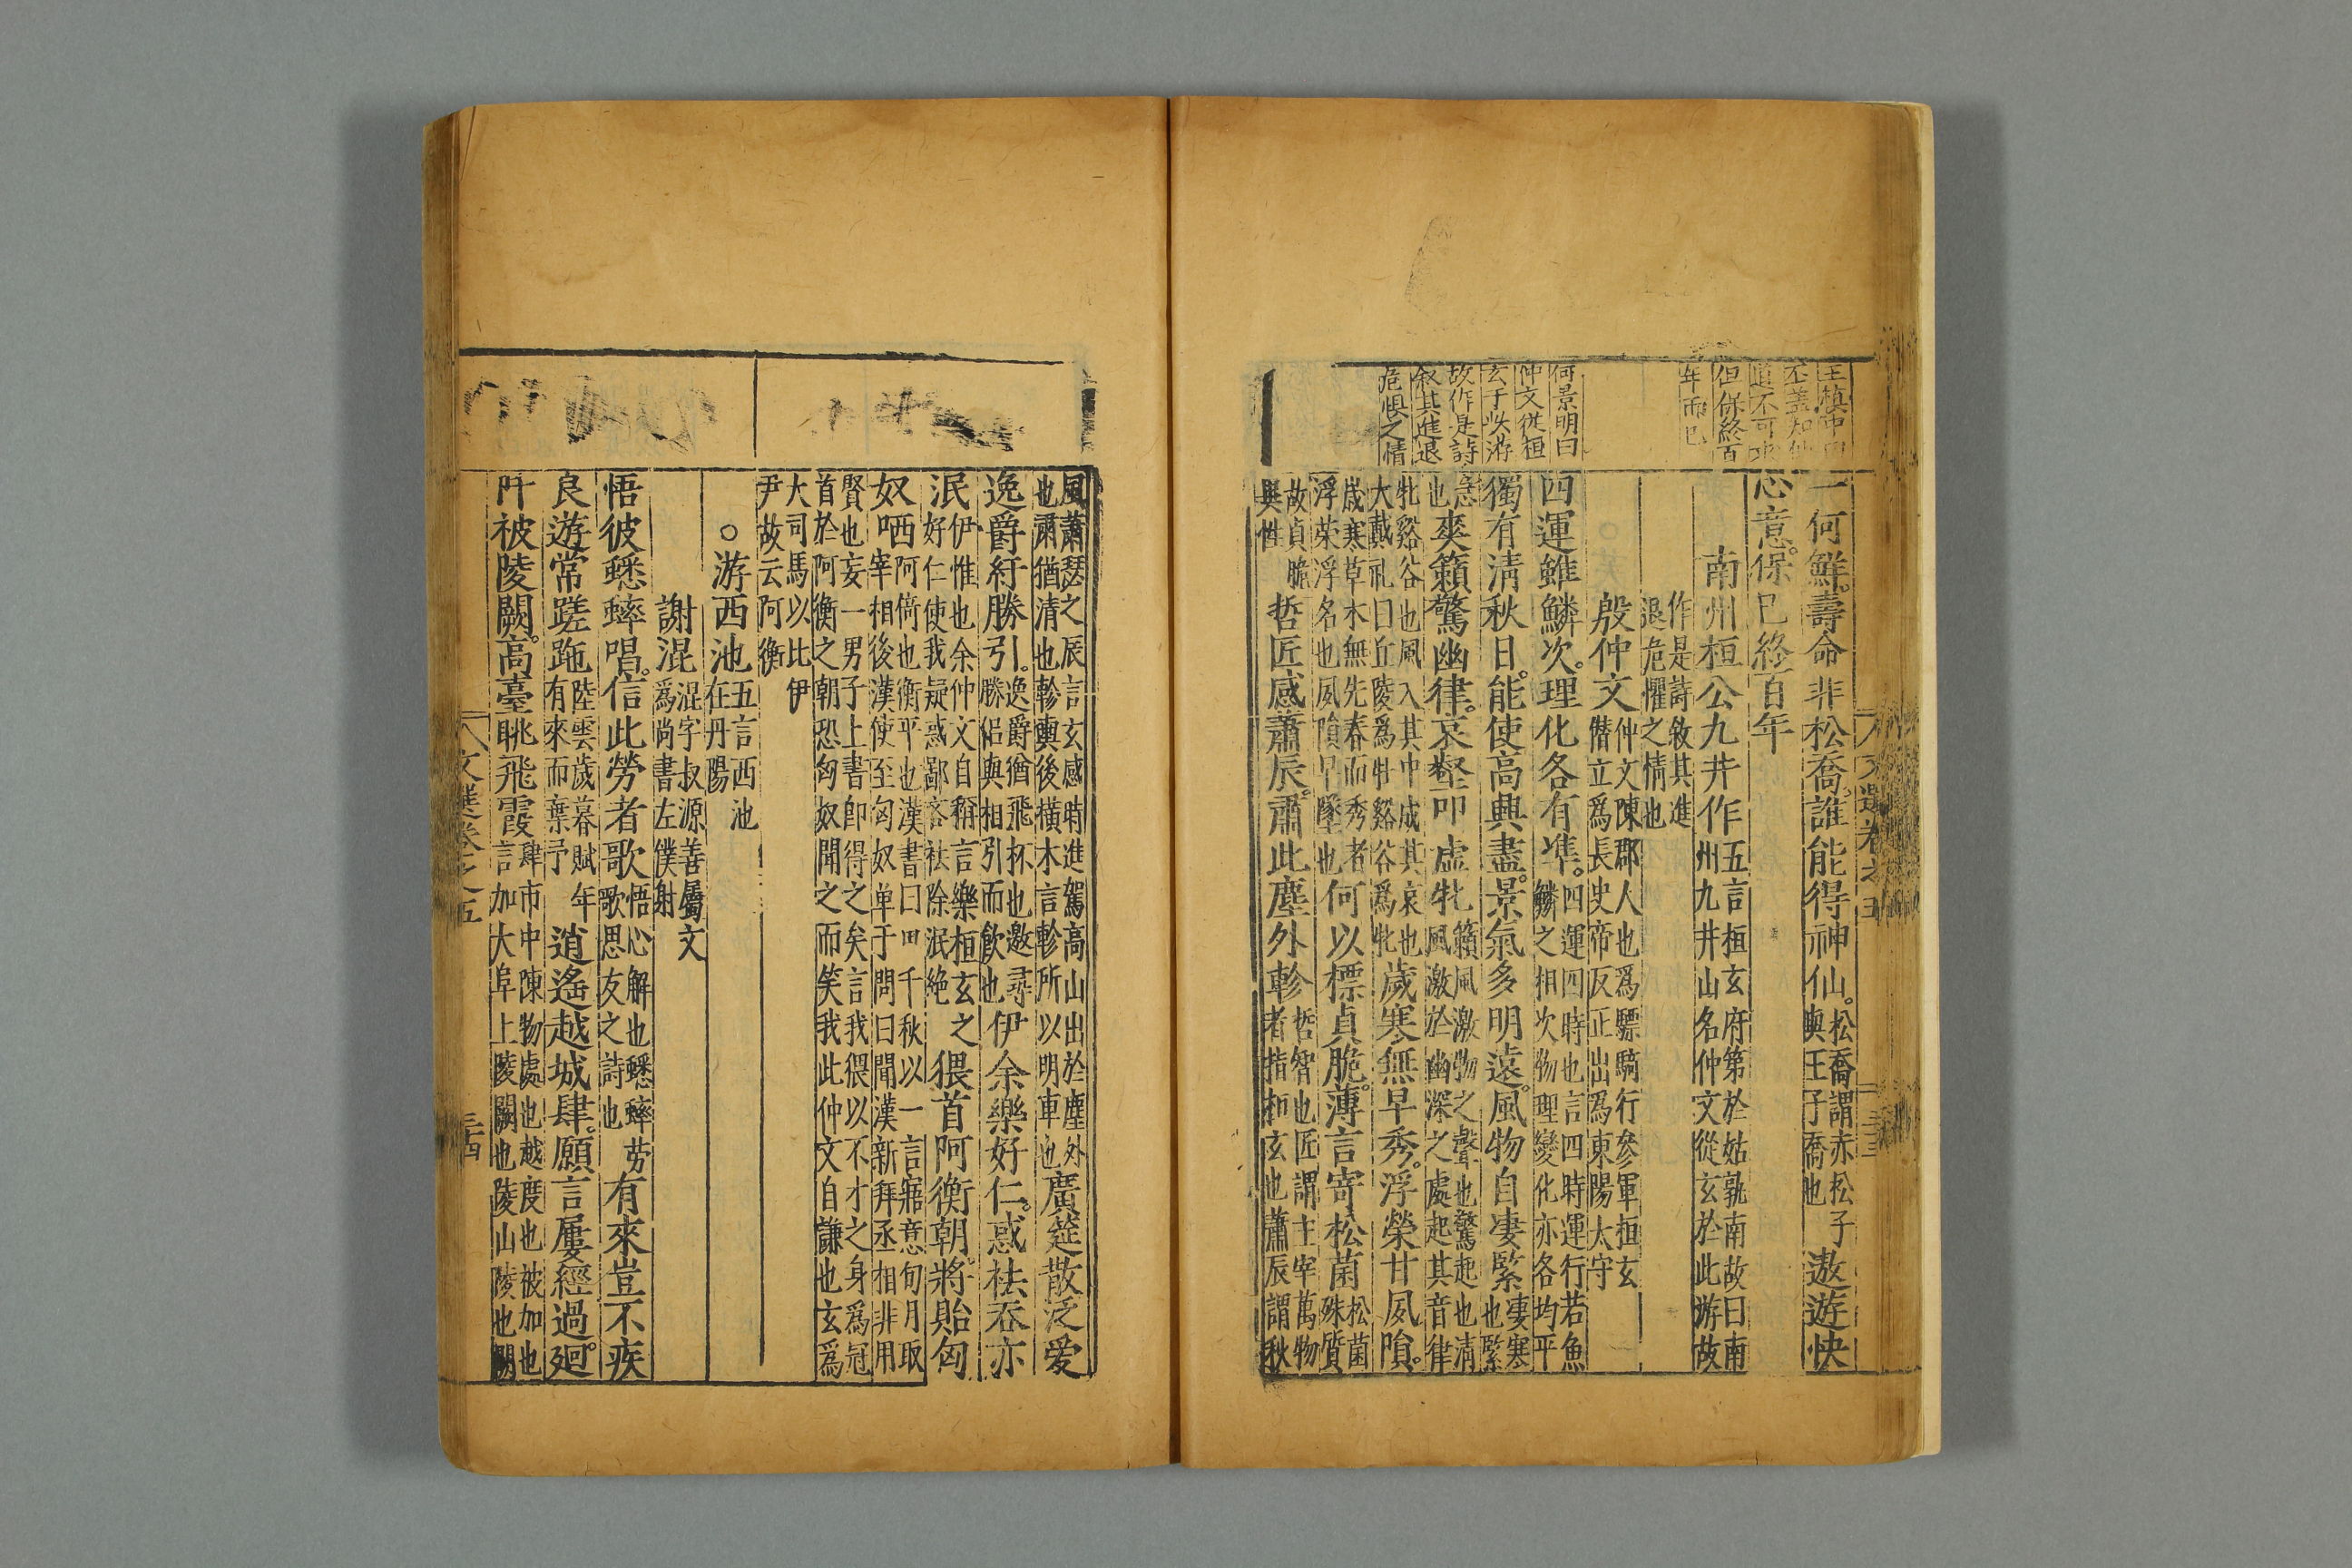 一何鮮壽命非松喬誰能得神仙松喬謂赤松子與王子喬也遨遊快
心意保已終百年
南州桓公九井作五言桓玄府第於姑孰南故曰南州九井山名仲文從玄於此游故
作是詩敘其進退危懼之情也
殷仲文仲文陳郡人也爲驃騎行參軍桓玄僭立爲長史帝反正出爲東陽太守
四運雖鱗次理化各有準四運四時也言四時運行若魚鱗之相次物理變化亦各均平
獨有清秋日能使高興盡景氣多明遠風物自凄緊凄寒也緊
急也爽籟驚幽律哀壑叩虛牝籟風激物之聲也驚起也清風激於幽深之處起其音律
牝谿谷也風入其中成其哀也大戴礼曰丘陵爲牡谿谷爲牝歲寒無早秀浮榮甘夙隕
歲寒草木無先春而秀者浮荣浮名也夙隕早墜也何以標貞脆薄言寄松菌松菌殊質
故貞脆異性哲匠感蕭辰肅此塵外軫哲智也匠謂主宰萬物者指桓玄也蕭辰謂秋
王慎中曰
不盖知仙
道不可求
但保終百
年而已
何景明曰
仲文從桓
玄于此游
故作是詩
叙其進退
危惧之情
文選卷之五
風蕭瑟之辰言玄感時進駕高山出於塵外也肅猶清也軫輿後橫木言軫所以明車也廣筵散泛愛
逸爵紆勝引逸爵猶飛杯也邀尋勝侶與相引而飲也伊余樂好仁惑袪吝亦
泯伊惟也余仲文自稱言樂桓玄之好仁使我疑惑鄙吝袪除泯絶猥首阿衡朝將貽匈
奴哂阿倚也衡平也漢書曰田千秋以一言寤意旬月取宰相後漢使至匈奴单于問曰聞漢新拜丞相非用
賢也妄一男子上書即得之矣言我猥以不才之身爲冠首於阿衡之朝恐匈奴聞之而笑我此仲文自謙也玄爲
大司馬以比伊尹故云阿衡
○游西池五言西池在丹陽
謝混混字叔源善屬文爲尚書左僕射
悟彼蟋蟀唱信此勞者歌悟心解也蟋蟀劳歌思友之詩也有來豈不疾
良遊常蹉跎陸雲歲暮賦年有來而棄予逍遙越城肆願言屢經過廻
阡被陵闕高臺眺飛霞肆市中陳物處也越度也被加也言加大阜上陵闕也陵山陵也闕
文選卷之五